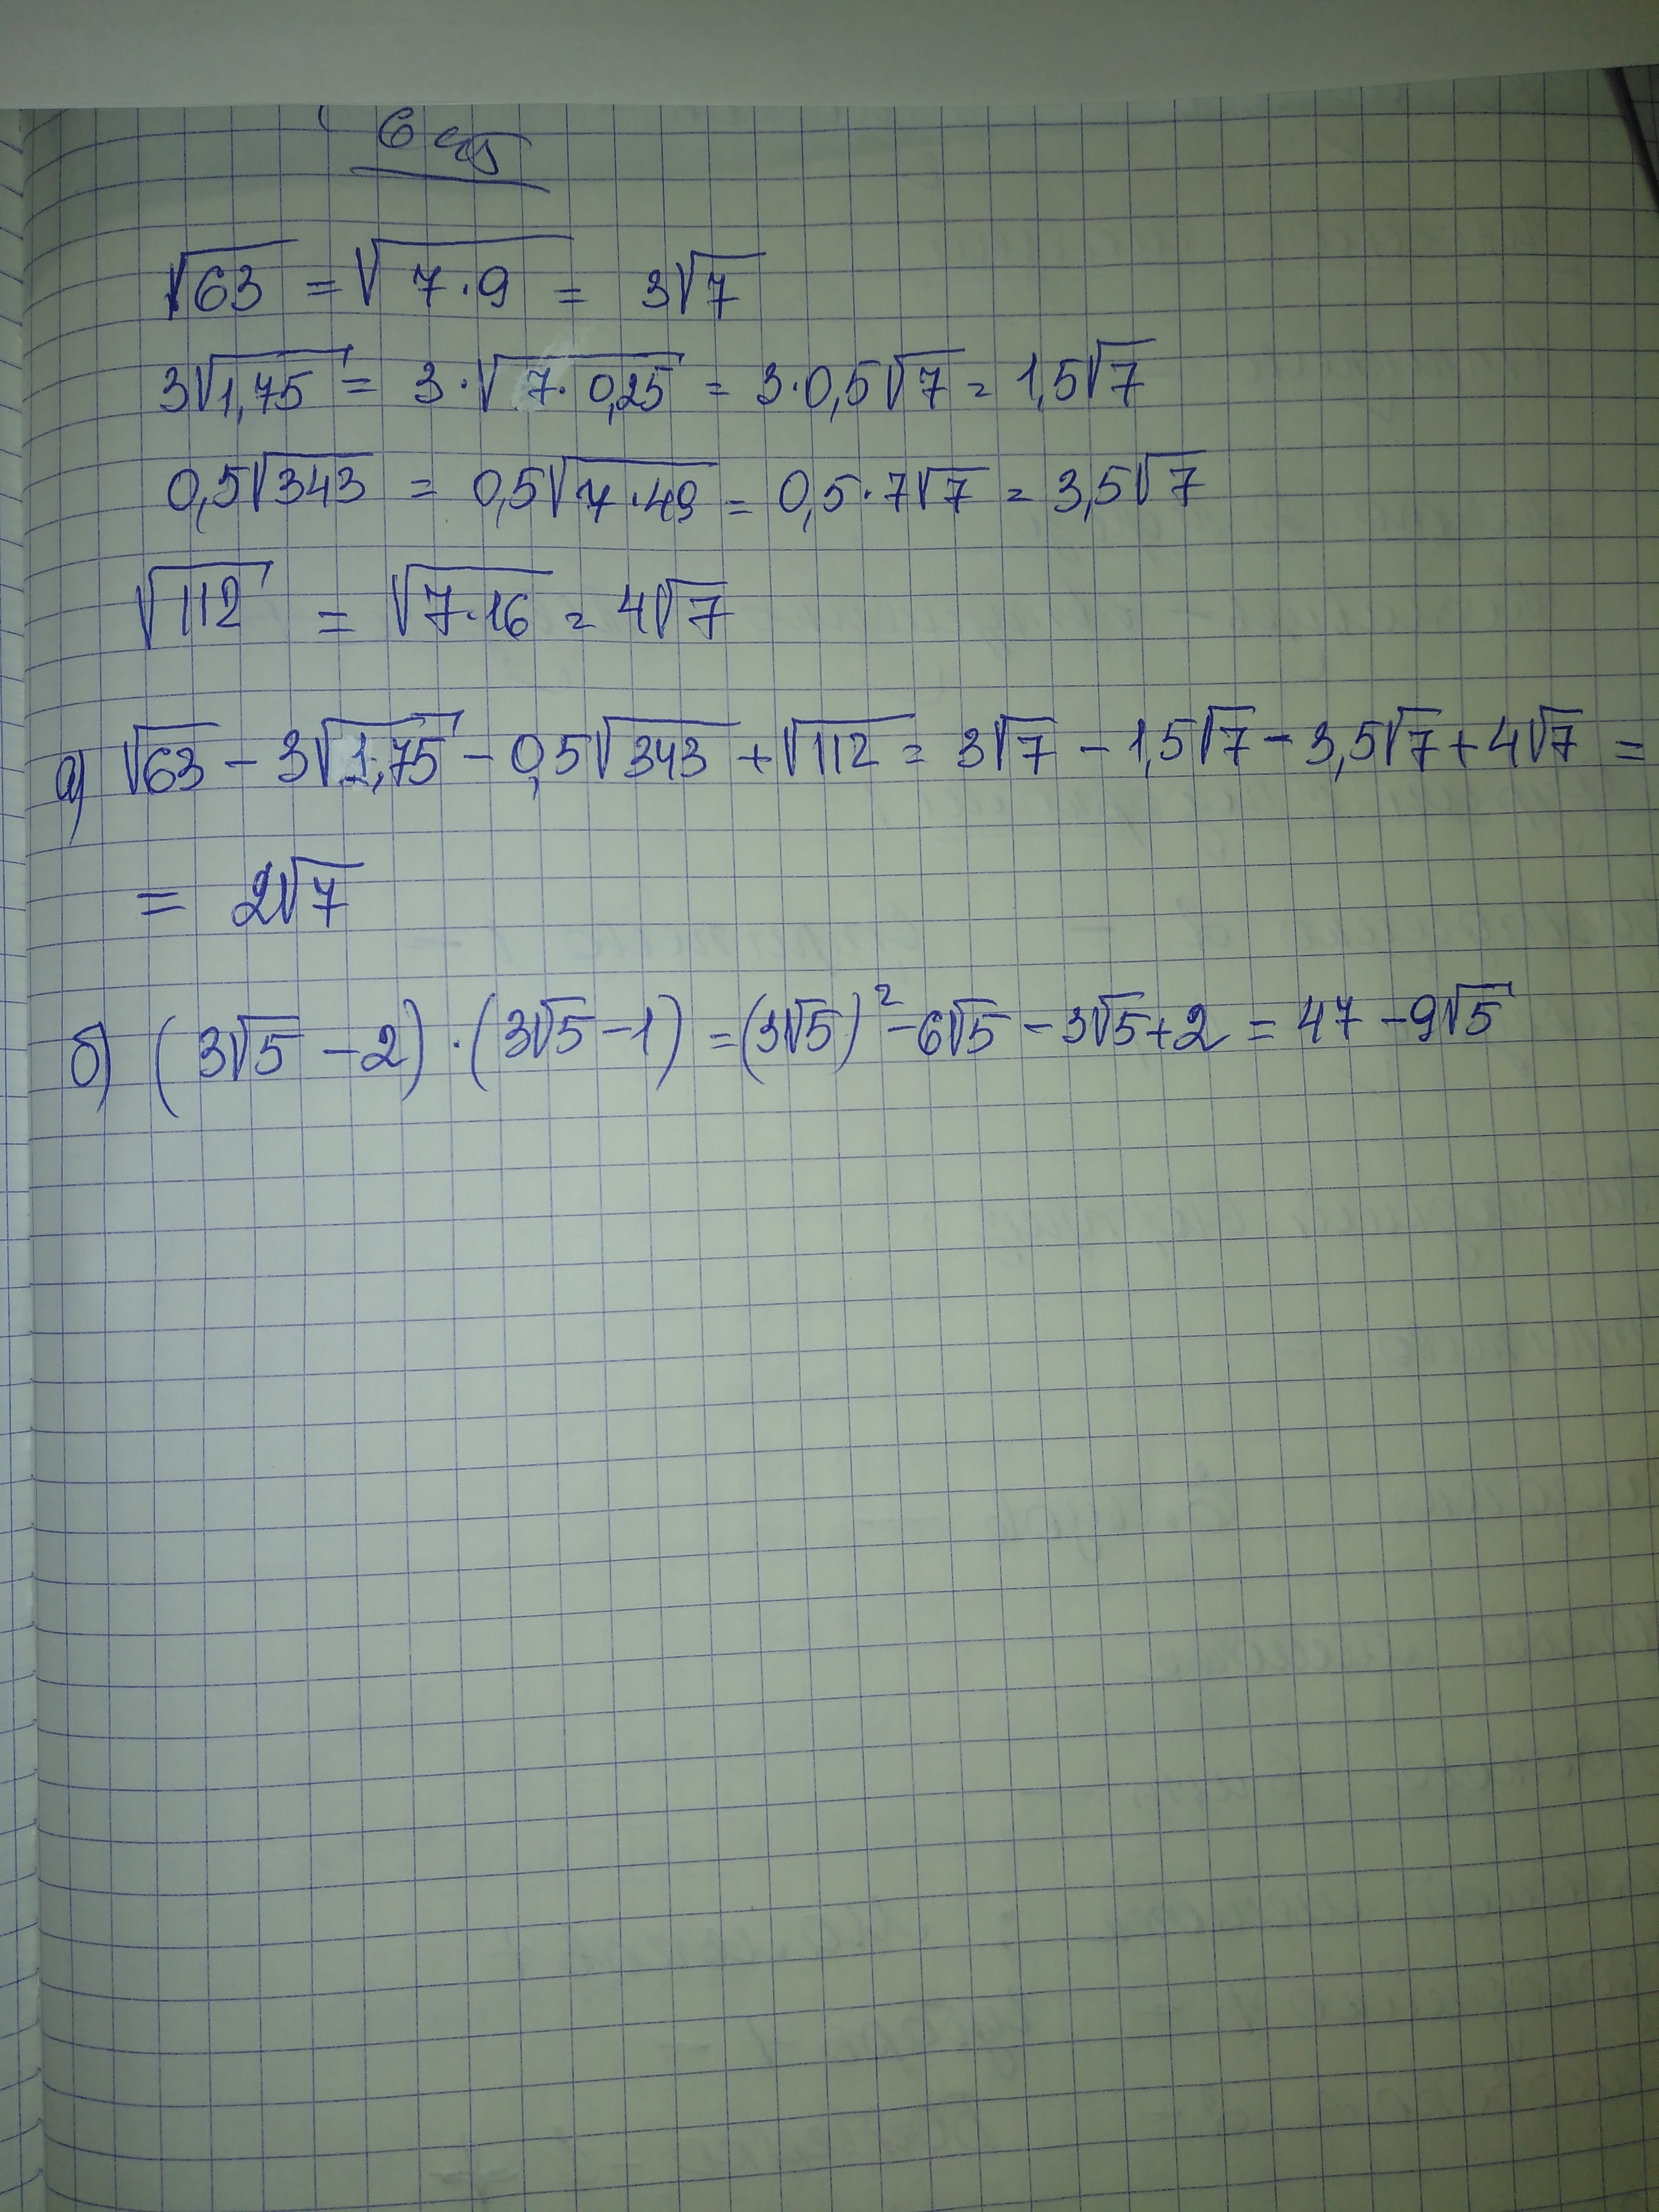 √63 = √7·9 = 3√7
3√1,75 = 3·√7·0,25 = 3·0,5√7 = 1,5√7
0,5√343 = 0,5√7·49 = 0,5·7√7 = 3,5√7
√112 = √7·16 = 4√7
а) √63 - 3√1,75 - 0,5√343 + √112 = 3√7 - 1,5√7 - 3,5√7 + 4√7 =
= 2√7
б) (3√5 - 2)·(3√5 - 1) = (3√5)² - 6√5 - 3√5 + 2 = 47 - 9√5